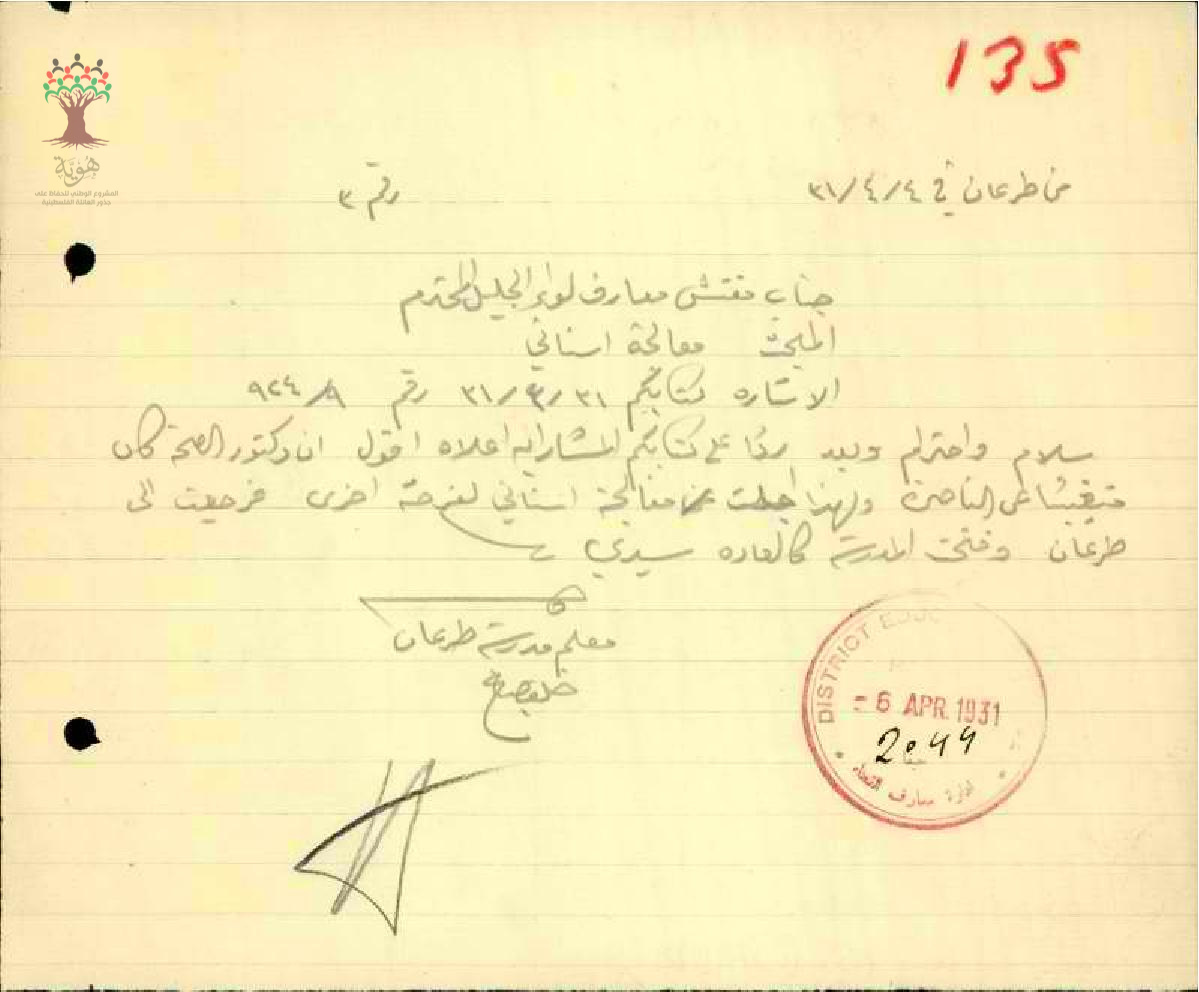 135
هُوِيَّة
المشروع الوطني للحفاظ على
جذور العائلة الفلسطينية
من طرعان في ٣١/٤/٤
رقم ٣
جناب مفتش معارف لواء الجليل المحترم
المبحث معالجة اسناني
الاشاره كتابكم ٣١/٣/٣١ رقم ٩٢٤/٩
سلام واحترام وبعد ردًا على كتابكم المشار اليه اعلاه اقول ان دكتور الصحة كان
متغيبًا عن الناصرة ولهذا اجلت معالجة اسناني لفرصة اخرى فرجعت الى
طرعان وفتحت المدرسة كالعاده سيدي
معلم مدرسة طرعان
DISTRICT EDUC
- 6 APR 1931
2099
ادارة معارف القضاء